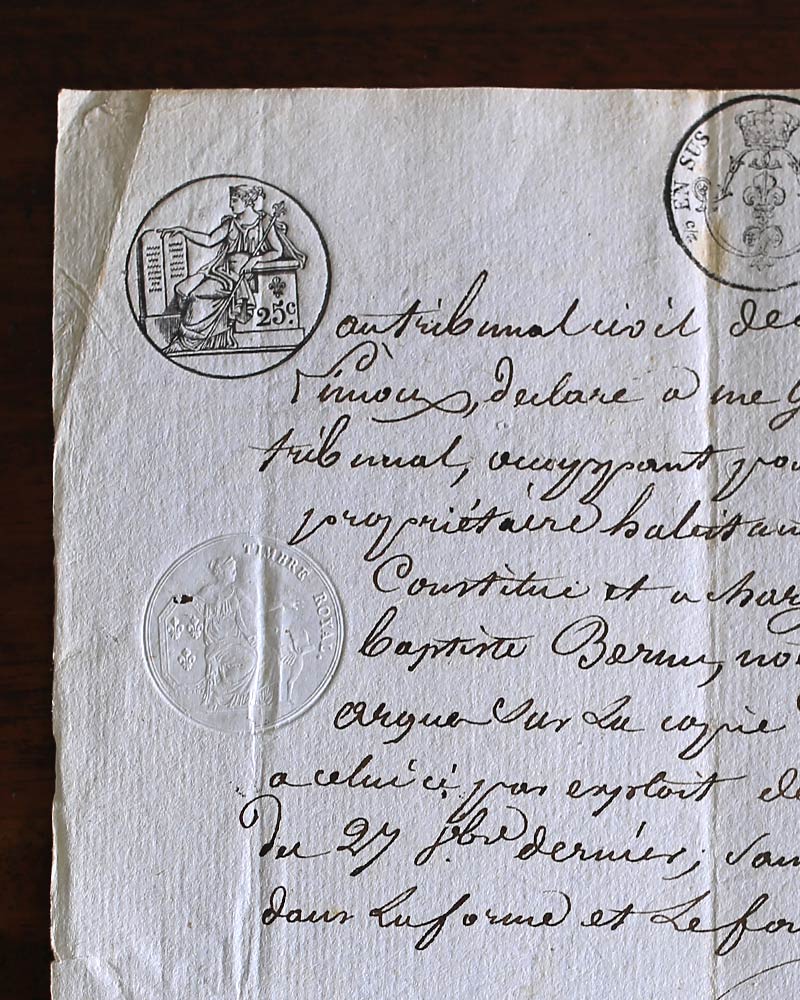 c/z EN SUS
25.c
TIMBRE ROYAL.
au tribunal civil de
Limoux, declare a me
tribunal, occuppant pou
propriétaire habitan
Constitué et a char
baptiste
argue sur La copie
a celui ci par exploit de
Du 27 dernier, San
dans La forme et Le fo